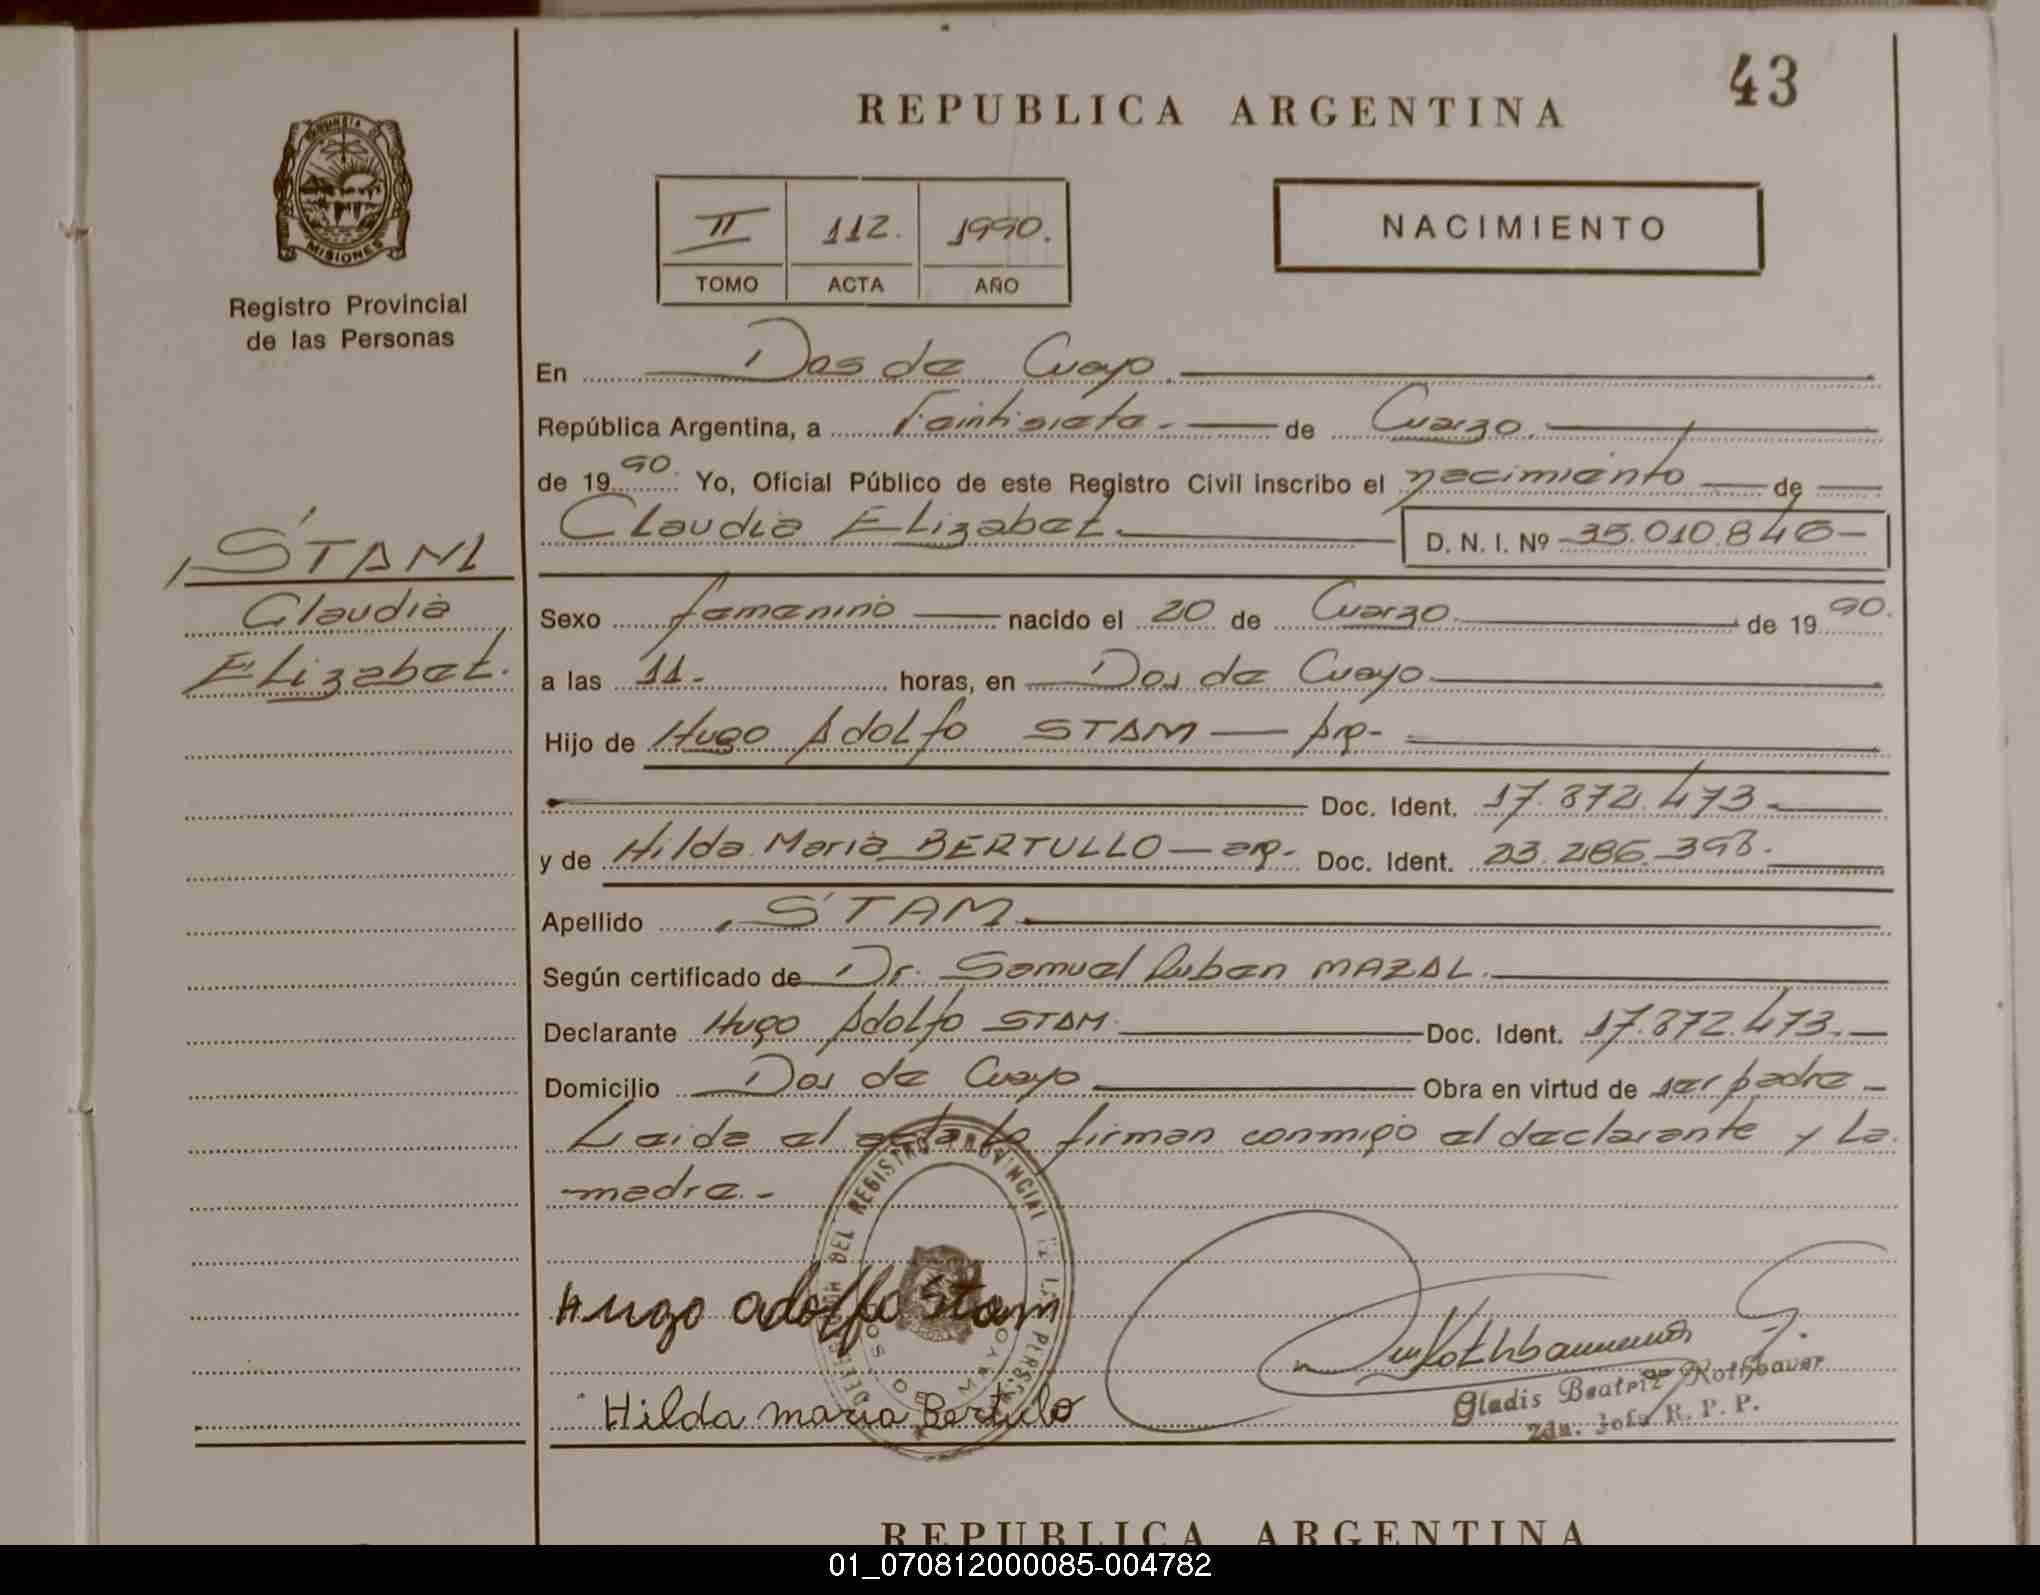 43
REPUBLICA ARGENTINA
PROVINCIA DE MISIONES
Registro Provincial
de las Personas
II 112. 1990.
TOMO ACTA AÑO
NACIMIENTO
En Dos de Mayo
República Argentina, a Veintisiete.- de Marzo.
de 1990. Yo, Oficial Público de este Registro Civil inscribo el nacimiento de
Claudia Elizabet. D. N. I. Nº 35.010.846-
STAM
Claudia
Elizabet.
Sexo femenino nacido el 20 de Marzo. de 1990.
a las 11.- horas, en Dos de Mayo
Hijo de Hugo Adolfo STAM — arg-
Doc. Ident. 17.872.473-
y de Hilda Maria BERTULLO — arg- Doc. Ident. 23.286.398.
Apellido STAM
Según certificado de Dr. Samuel Ruben MAZAL.
Declarante Hugo Adolfo STAM. Doc. Ident. 17.872.473.-
Domicilio Dos de Mayo Obra en virtud de ser padre -
Leida el acta la firman conmigo el declarante y la
madre.-
DEL REGISTRO PROVINCIAL DE LAS PERSONAS
DOS DE MAYO
Hugo adolfo Stam
Hilda maria Bertulo
Gladis Beatriz Rothbauer
2da. Jefa R. P. P.
REPUBLICA ARGENTINA
01_070812000085-004782